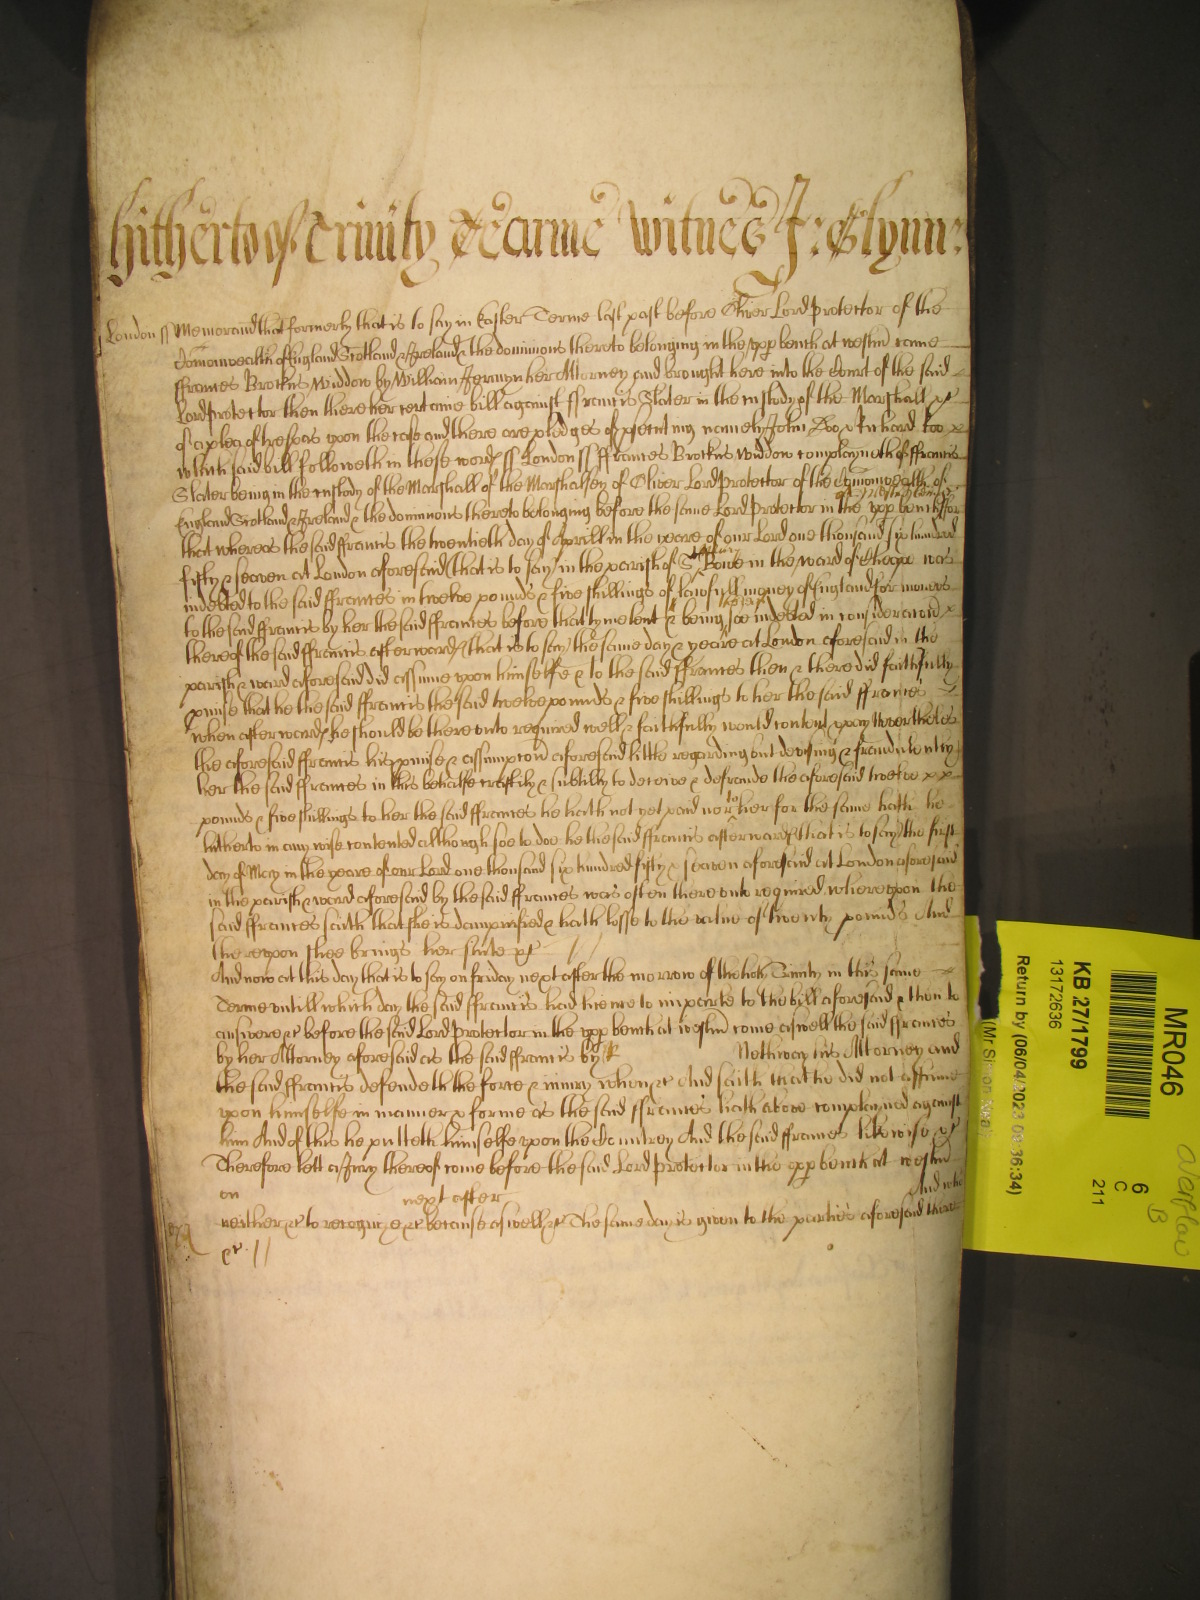 hitherto of Trinity Tearme Witnes J: Glynn:
London ss Memorand that formerly that is to say in Easter Terme last past before Oliver Lord Protector of the
Comonwealth of England Scotland & Ireland & the dominions thereto belonging in the upp bench at westm came
ffrances Brockus Widdow by William Jermyn her Attorney and brought here into the Court of the said
Lord Protector then there her certaine bill against ffrancis Slater in the custody of the Marshall &c
of a plea of trespas upon the case and there are pledges of psecuting namely John Doo & Richard Roo
which said bill followeth in these word ss London ss ffrances Brockus Widdow complayneth of ffrancis
Slater being in the custody of the Marshall of the Marshalsey of Oliver Lord Protector of the Comonwealth of
England Scotland & Ireland & the dominions thereto belonging before the same Lord Protector in the upp bench for
that whereas the said ffrancis the twentieth day of Aprill in the yeare of our Lord one thousand six hundred
fifty & seaven at London aforesaid (that is to say) in the parish of St Bowe in the ward of Cheape was
indebted to the said ffrances in twelve pounds & five shillings of lawfull money of England for moneys
to the said ffrancis by her the said ffrances before that tyme lent & being soe indebted in consideracon
thereof the said ffrancis afterward (that is to say) the same day & yeare at London aforesaid in the
parish & ward aforesaid did assume upon himselfe & to the said ffrances then & there did faithfully
pmise that he the said ffrancis the said twelve pounds & five shillings to her the said ffrances
when afterward he should be thereunto required well & faithfully would content & pay Neverthelес
the aforesaid ffrancis his pmise & assumption aforesaid little regarding but devising & fraudulently
her the said ffrances in this behalfe craftily & subtilly to deceive & defraude the aforesaid twelve
pounds & five shillings to her the said ffrances he hath not yet paid nor to her for the same hath he
hitherto in any wise contented although soe to doe he the said ffrancis afterward (that is to say) the first
day of May in the yeare of our Lord one thousand six hundred fifty & seaven aforesaid at London aforesaid
in the parish & ward aforesaid by the said ffrances was often thereunto required whereupon the
said ffrances saith that she is dampnified & hath losse to the value of twenty pounds And
thereupon shee brings her suite &c
And now at this day that is to say on friday next after the morrow of the holy Trinity in this same
Terme untill which day the said ffrancis had licence to imparle to the bill aforesaid & then to
answere &c before the said Lord Protector in the upp bench at westm come aswell the said ffrances
by her Attorney aforesaid as the said ffrancis by Nethway his Attorney and
the said ffrancis defendeth the force & iniury when &c And saith that he did not assume
upon himselfe in manner & forme as the said ffrances hath above complayned against
him And of this he putteth himselfe upon the Countrey And the said ffrances likewise &c
Therefore lett a Jury thereof come before the said Lord Protector in the upp bench at westm
on next after And who
neither &c to recognize &c because aswell &c The same day is given to the parties aforesaid there
&c
MR046
KB 27/1799
13172636
Return by (06/04/2023 09:36:34)
6
C
211
Overflow
B